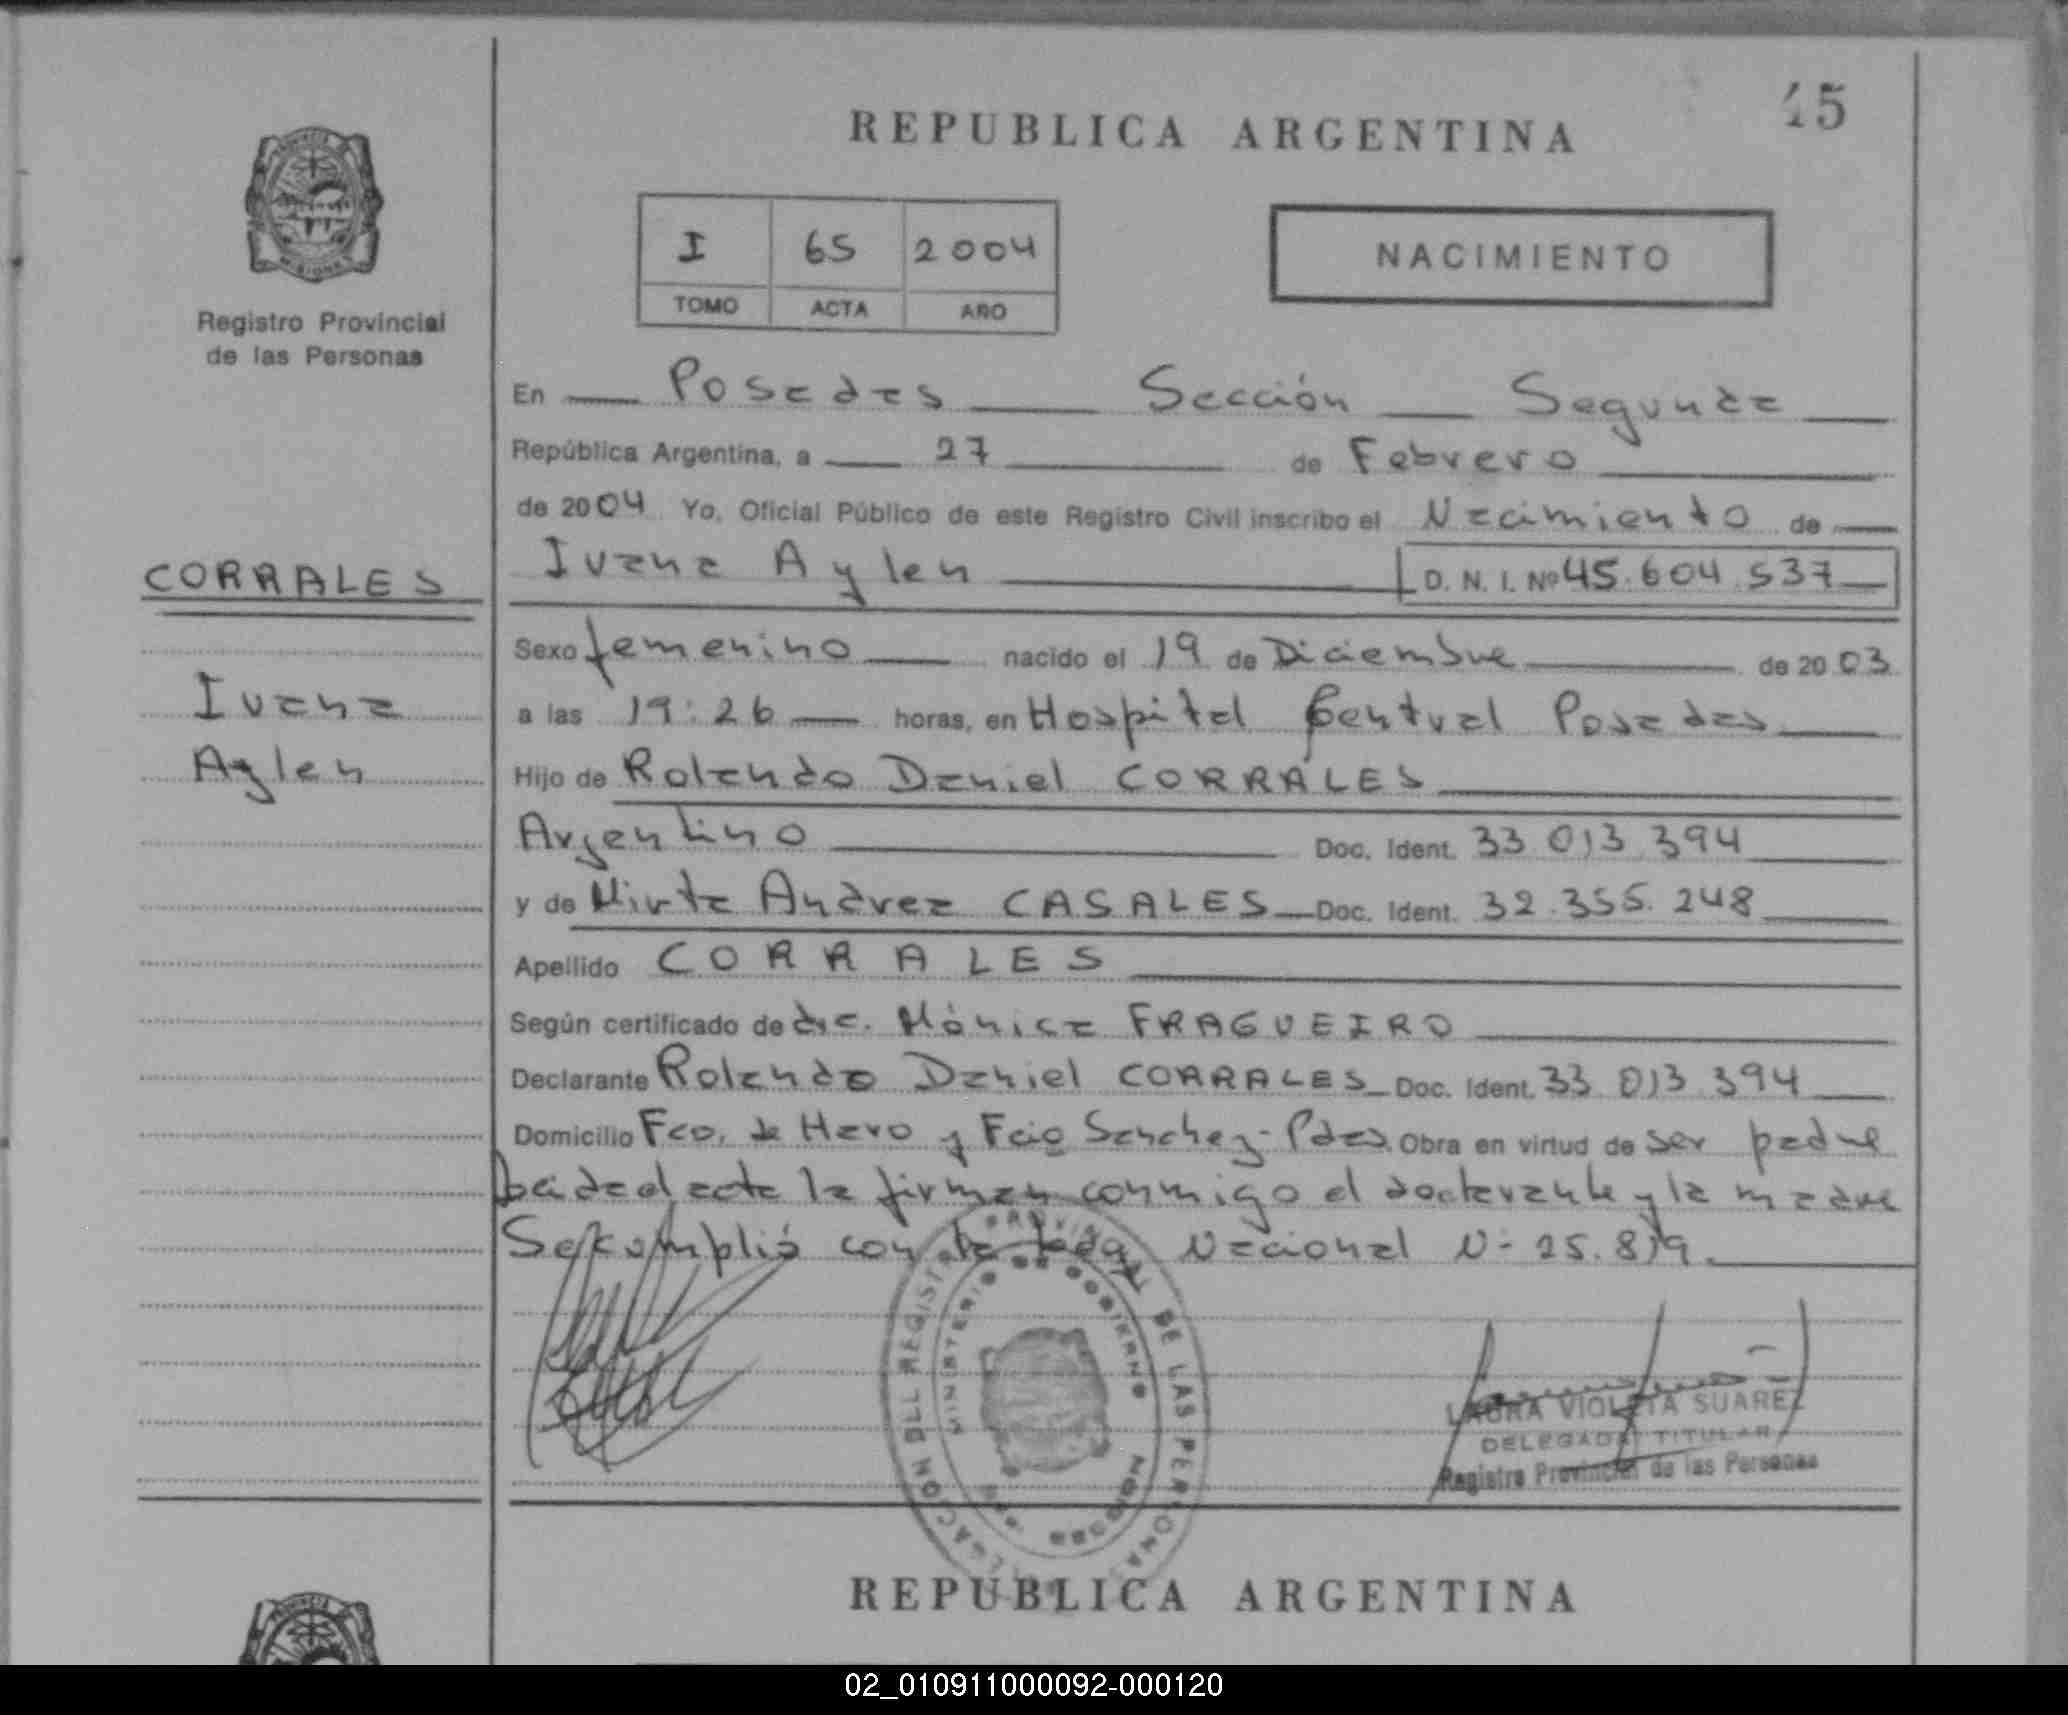 45
REPUBLICA ARGENTINA
PROVINCIA
MISIONES
Registro Provincial
de las Personas
I 65 2004
TOMO ACTA AÑO
NACIMIENTO
En Posadas Sección Segunda
República Argentina, a 27 de Febrero
de 2004 Yo, Oficial Público de este Registro Civil inscribo el Nacimiento de
Ivana Aylen D. N. I. Nº 45.604.537
CORRALES
Ivana
Aylen
Sexo femenino nacido el 19 de Diciembre de 2003
a las 19:26 horas, en Hospital Central Posadas
Hijo de Rolando Daniel CORRALES
Argentino Doc. Ident. 33.013.394
y de Mirta Andrea CASALES Doc. Ident. 32.355.248
Apellido CORRALES
Según certificado de dra. Mónica FRAGUEIRO
Declarante Rolando Daniel CORRALES Doc. Ident. 33.013.394
Domicilio Fco. de Haro y Fcio Sanchez - Pdas. Obra en virtud de ser padre
Leida el acta la firman conmigo el declarante y la madre
Se cumplió con la Ley Nacional Nº 25.819
DELEGACION DEL REGISTRO PROVINCIAL DE LAS PERSONAS
MINISTERIO DE GOBIERNO
LAURA VIOLETA SUAREZ
DELEGADA TITULAR
Registro Provincial de las Personas
REPUBLICA ARGENTINA
PROVINCIA
02_010911000092-000120